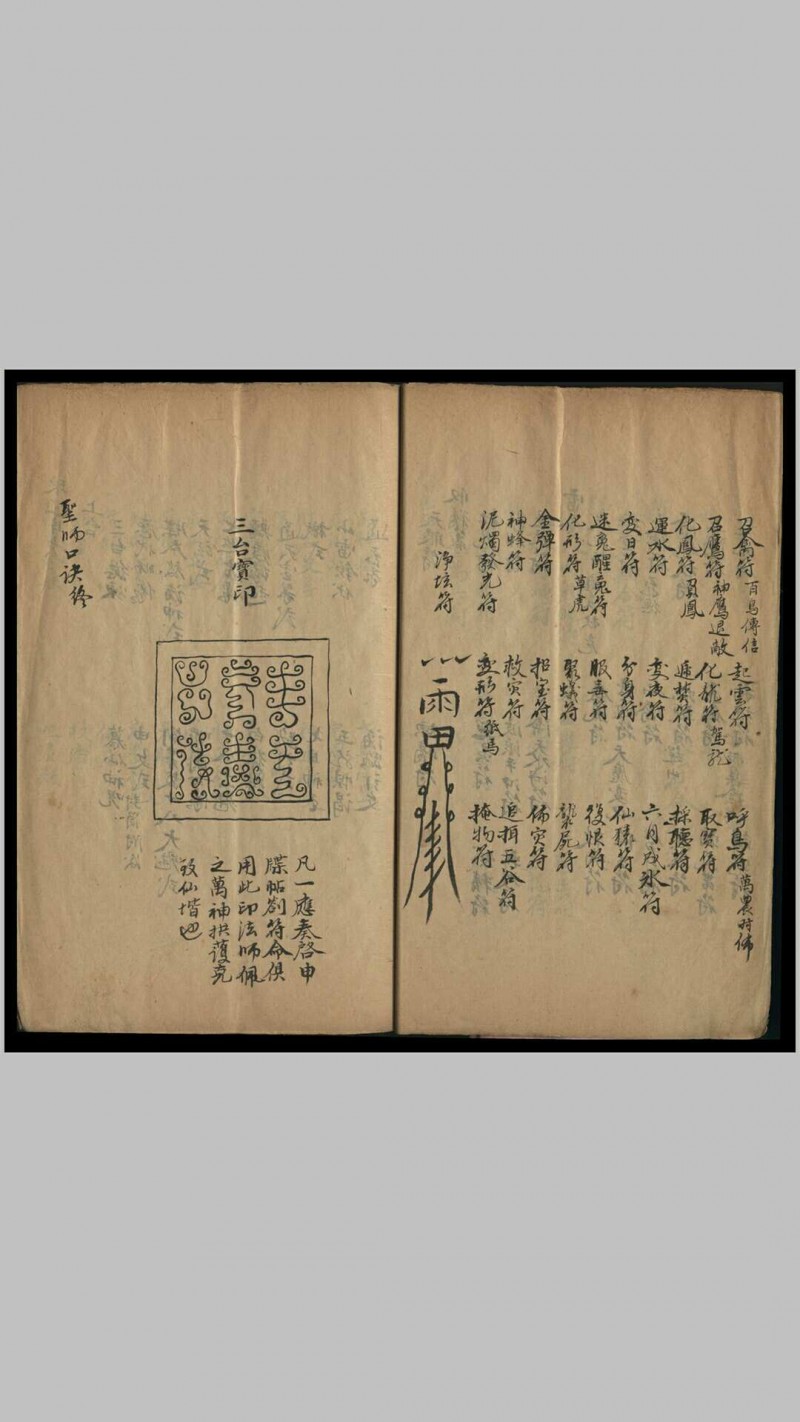 召禽符 百鳥傳信 起雲符 呼鳥符 萬農対佈
召鷹符 神鷹退敵 化龍符 駕龍 取寶符
化鳳符 引鳳 遁焚符 採聽符
運水符 变夜符 六月成氷符
变日符 分身符 仙猿符
迷鬼醒鬼符 服毒符 後悔符
化形符 草虎 聚蟻符 聚屍符
金彈符 招宝符 佈灾符
神蜂符 救灾符 追捐五谷符
泥燭發光符 变形符 紙馬 掩物符
淨坛符
三台寶印
凡一應奏啓申
牒帖劄符命俱
用此印法師佩
之萬神拱護
仙堦
聖師口诀終